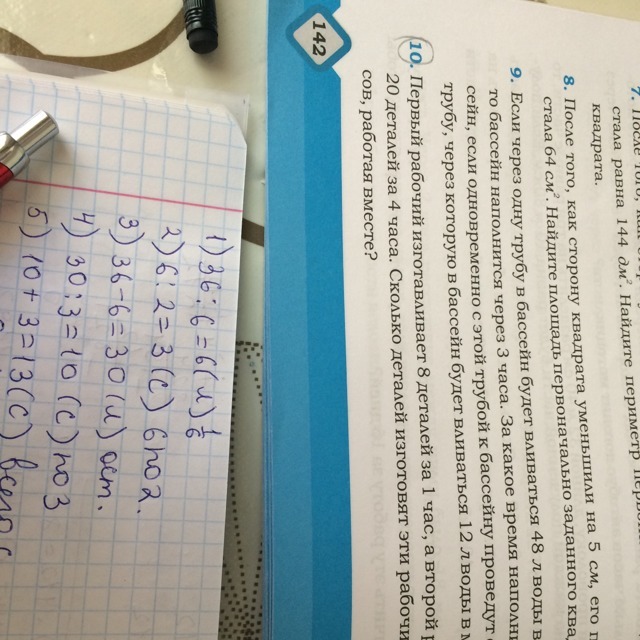 7.
стала равна 144 дм². Найдите периметр
квадрата.
8. После того, как сторону квадрата уменьшили на 5 см, его п
стала 64 см². Найдите площадь первоначально заданного ква
9. Если через одну трубу в бассейн будет вливаться 48 л воды в
то бассейн наполнится через 3 часа. За какое время наполн
сейн, если одновременно с этой трубой к бассейну проведут
трубу, через которую в бассейн будет вливаться 12 л воды в м
10. Первый рабочий изготавливает 8 деталей за 1 час, а второй р
20 деталей за 4 часа. Сколько деталей изготовят эти рабочи
сов, работая вместе?
142
1) 36:6=6(л) 1/6
2) 6:2=3(с) по 2.
3) 36-6=30(л) ост.
4) 30:3=10(с) по 3
5) 10+3=13(с) всего